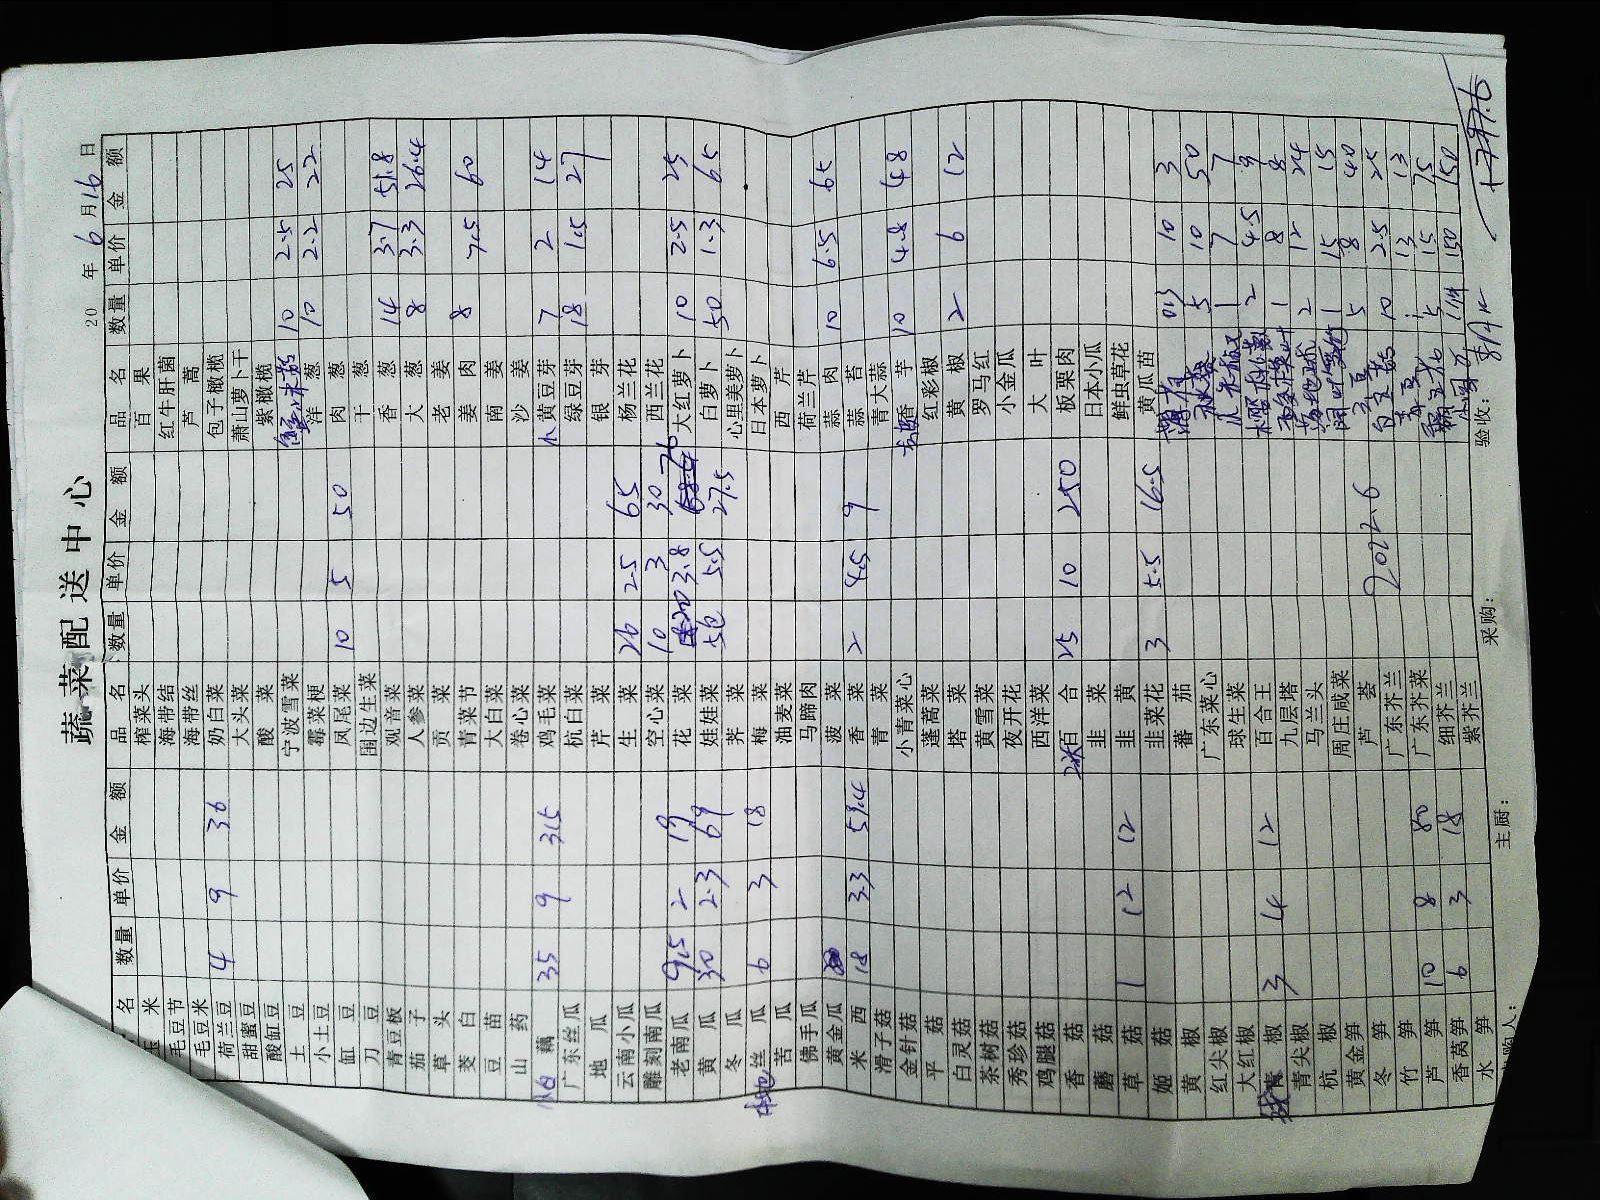 蔬菜配送中心
20 年 6月16日
名 数量 单价 金额 品名 数量 单价 金额 品名 数量 单价 金额
米 榨菜头 百果
毛豆节 海带结 红牛肝菌
毛豆米 海带丝 芦蒿
荷兰豆 4 9 36 奶白菜 包子橄榄
甜蜜豆 大头菜 萧山萝卜干
酸缸豆 酸菜 紫橄榄
土豆 宁波雪菜 10 2.5 25
小土豆 霉菜梗 洋葱 10 2.2 22
缸豆 凤尾菜 10 5 50 肉葱
刀豆 围边生菜 干葱
青豆板 观音菜 香葱 14 3.7 51.8
茄子 人参菜 大葱 8 3.3 26.4
草头 贡菜 老姜
茭白 青菜节 姜肉 8 7.5 60
豆苗 大白菜 南姜
山药 卷心菜 沙姜
藕 35 9 315 鸡毛菜 小黄豆芽 7 2 14
广东丝瓜 杭白菜 绿豆芽 18 1.5 27
地瓜 芹菜 银芽
云南小瓜 生菜 26 2.5 65 杨兰花
雕刻南瓜 空心菜 10 3 30 西兰花
老南瓜 9.5 2 19 花菜 20 3.8 76 大红萝卜 10 2.5 25
黄瓜 30 2.3 69 娃娃菜 5包 5.5 27.5 白萝卜 50 1.3 65
冬瓜 荠菜 心里美萝卜
本地丝瓜 6 3 18 梅菜 日本萝卜
苦瓜 油麦菜 西芹
佛手瓜 马蹄肉 荷兰芹
黄金瓜 菠菜 蒜肉 10 6.5 65
米西 18 3.3 59.4 香菜 2 4.5 9 蒜苔
滑子菇 青菜 青大蒜
金针菇 小青菜心 香芋 10 4.8 48
平菇 蓬蒿菜 红彩椒
白灵菇 塔菜 黄椒 2 6 12
茶树菇 黄雪菜 罗马红
秀珍菇 夜开花 小金瓜
鸡腿菇 西洋菜 大叶
香菇 百合 25 10 250 板栗肉
蘑菇 韭菜 日本小瓜
草菇 1 12 12 韭黄 鲜虫草花
姬菇 韭菜花 3 5.5 16.5 黄瓜苗
黄椒 蕃茄 0.3 10 3
红尖椒 广东菜心 5 10 50
大红椒 球生菜 1 7 7
青椒 3 4 12 百合王 2 4.5 9
青尖椒 九层塔 1 8 8
杭椒 马兰头 2 12 24
黄金笋 周庄咸菜 1 15 15
冬笋 芦荟 5 8 40
竹笋 广东芥兰 10 2.5 25
芦笋 10 8 80 广东芥菜 1 13 13
香莴笋 6 3 18 细芥兰 5 15 75
水笋 紫芥兰 1件 150 150
2022.6
1797.6
主厨： 采购： 验收：